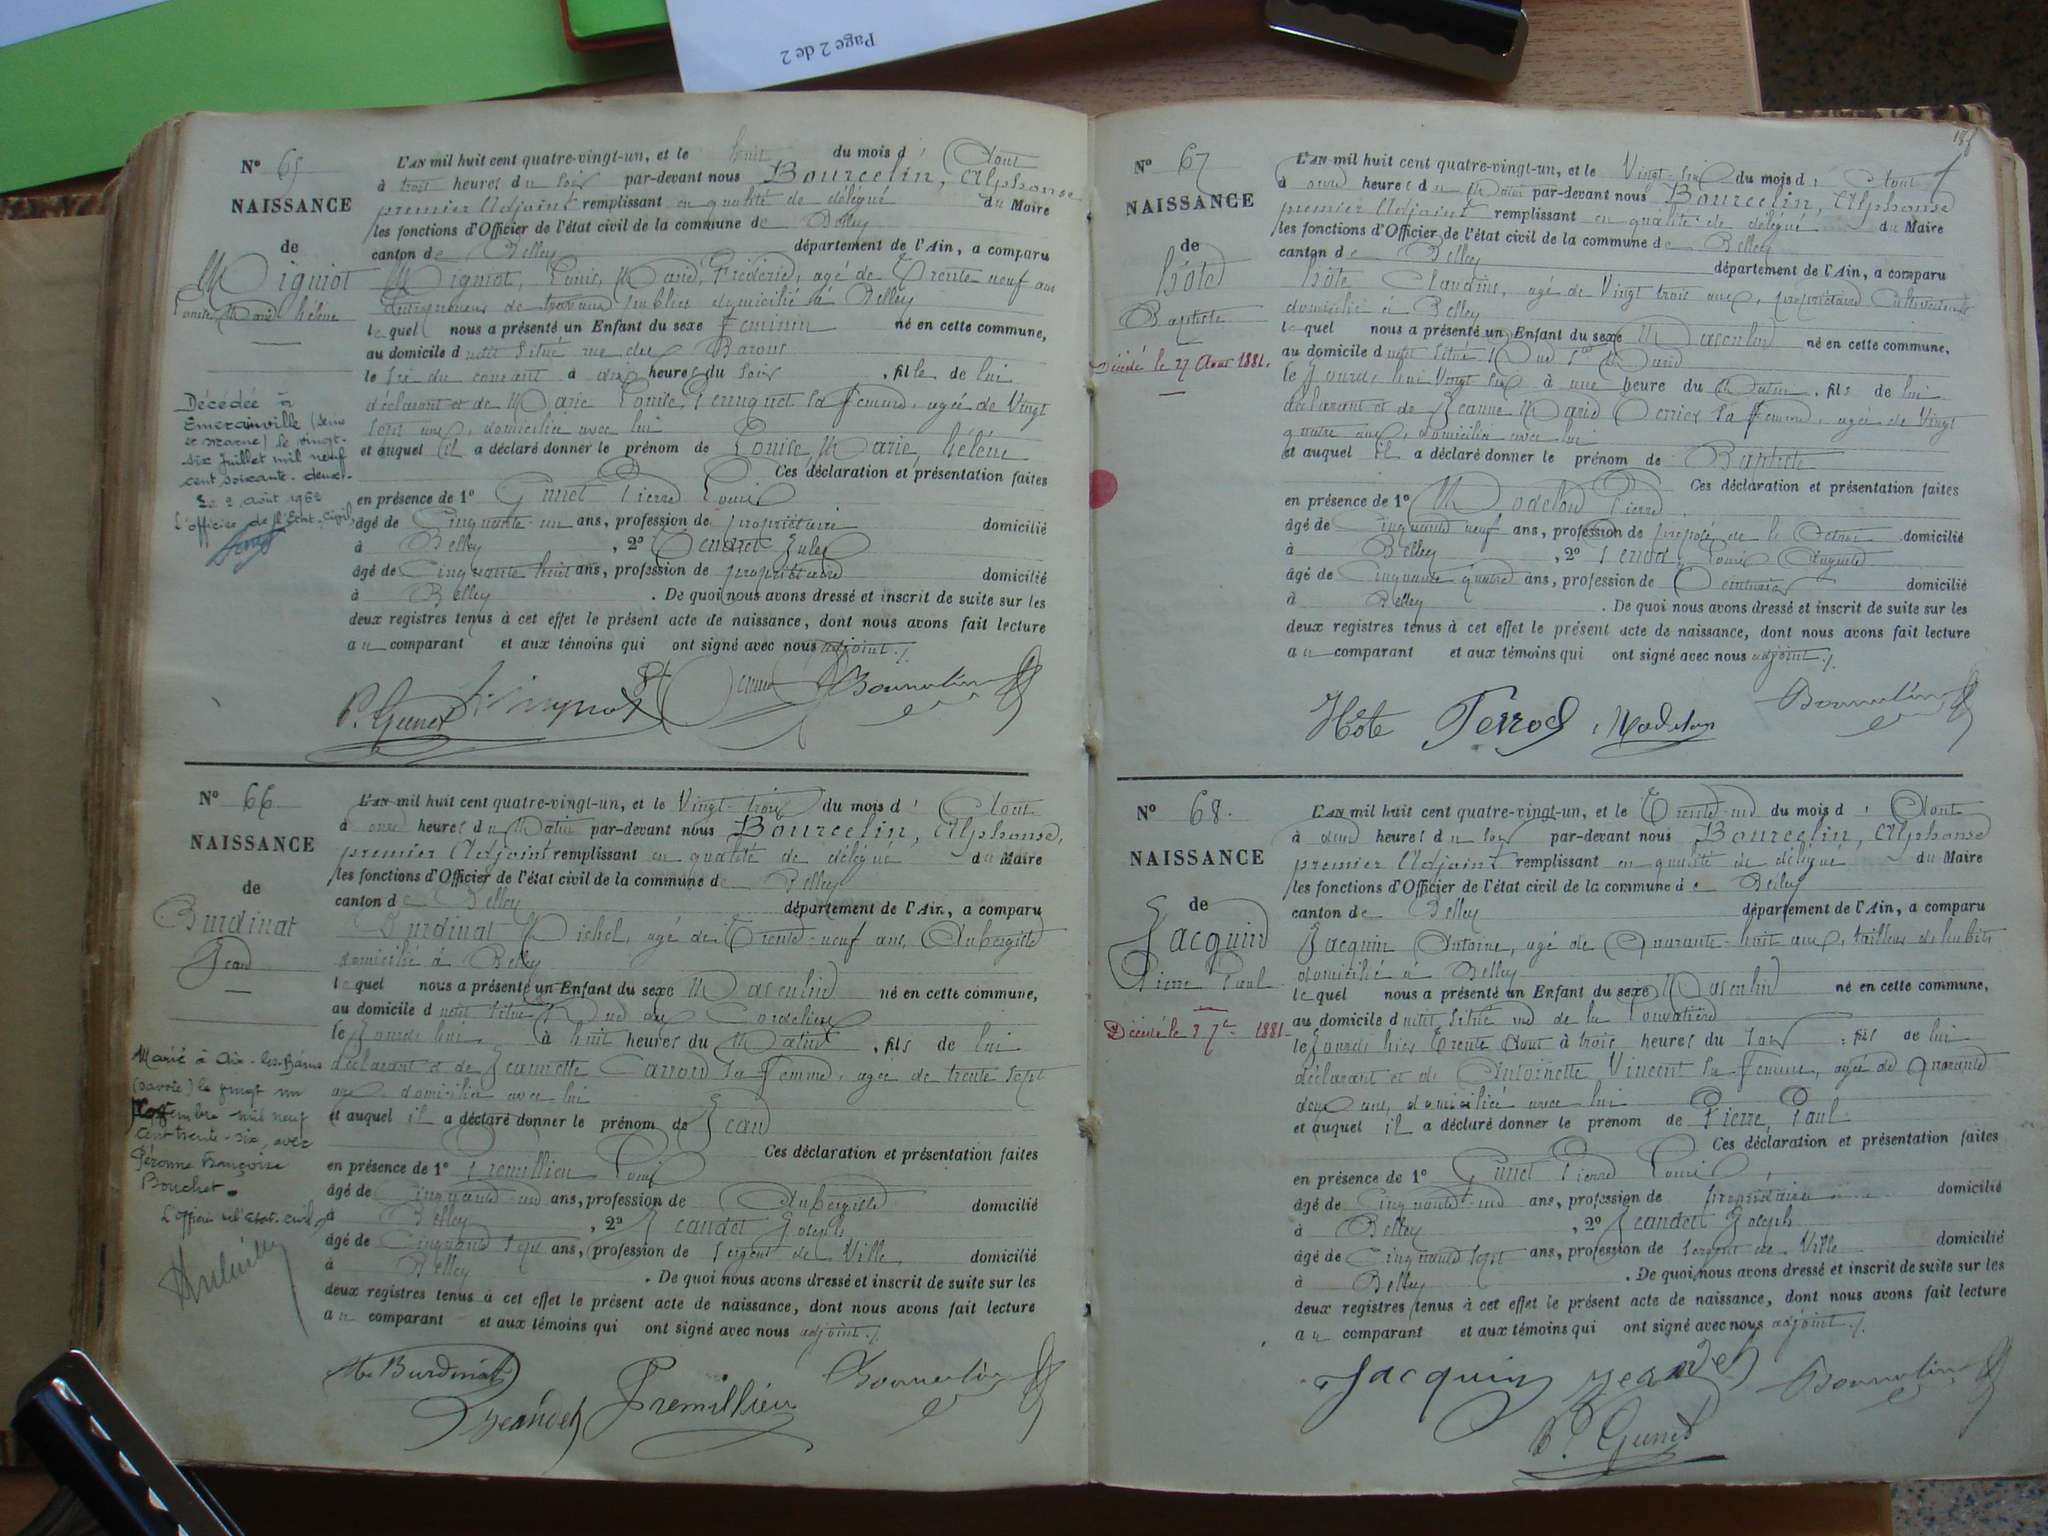 Page 2 de 2
N° 65
NAISSANCE
de
Migniot
Louise Marie hélène
Décédée à
Emerainville (Seine
et Marne) le vingt-
six Juillet mil neuf
cent soixante-deux.
Le 2 août 1962
L'officier de l'Etat-Civil,
L'AN mil huit cent quatre-vingt-un, et le huit du mois d' Aout
à trois heures du soir par-devant nous Bourcelin, Alphonse
premier Adjoint remplissant en qualité de délégué du Maire
les fonctions d'Officier de l'état civil de la commune de Belley
canton de Belley département de l'Ain, a comparu
Migniot, Louis, Marie, Frédéric, agé de Trente neuf ans
Entrepreneur de travaux publics domicilié à Belley
lequel nous a présenté un Enfant du sexe Feminin né en cette commune,
au domicile d situé rue des Barons
le six du courant à dix heures du soir, fille de lui
déclarant et de Marie Louise sa femme, agée de Vingt
sept ans, domiciliée avec lui
et auquel il a déclaré donner le prénom de Louise, Marie, hélène
Ces déclaration et présentation faites
en présence de 1° Gunet Pierre Louis
âgé de Cinquante-un ans, profession de propriétaire domicilié
à Belley, 2° Jules
âgé de Cinquante huit ans, profession de propriétaire domicilié
à Belley. De quoi nous avons dressé et inscrit de suite sur les
deux registres tenus à cet effet le présent acte de naissance, dont nous avons fait lecture
au comparant et aux témoins qui ont signé avec nous adjoint ./.
P. Gunet
N° 66
NAISSANCE
de
Burdinat
Jean
Marié à Aix-les-Bains
(savoie) le vingt un
mil neuf
cent trente-six, avec
Péronne Françoise
Bouchet.
L'officier de l'Etat-Civil,
L'AN mil huit cent quatre-vingt-un, et le Vingt-trois du mois d' Aout
à onze heures du Matin par-devant nous Bourcelin, Alphonse,
premier Adjoint remplissant en qualité de délégué du Maire
les fonctions d'Officier de l'état civil de la commune de Belley
canton de Belley département de l'Ain, a comparu
Burdinat Michel, agé de Trente-neuf ans, Aubergiste
domicilié à Belley
lequel nous a présenté un Enfant du sexe Masculin né en cette commune,
au domicile d situé Rue des Cordeliers
le Jourdhui à huit heures du Matin, fils de lui
déclarant et de Jeannette sa Femme, agée de trente sept
ans, domiciliée avec lui
et auquel il a déclaré donner le prénom de Jean
Ces déclaration et présentation faites
en présence de 1° Premillieu Louis
âgé de Cinquante-un ans, profession de Aubergiste domicilié
à Belley, 2° Jeandet Joseph
âgé de Cinquante sept ans, profession de Sergent de Ville domicilié
à Belley. De quoi nous avons dressé et inscrit de suite sur les
deux registres tenus à cet effet le présent acte de naissance, dont nous avons fait lecture
au comparant et aux témoins qui ont signé avec nous adjoint ./.
Burdinat
Jeandet Premillieu
N° 67
NAISSANCE
de
hôte
Baptiste
Décédé le 27 Aout 1881.
L'AN mil huit cent quatre-vingt-un, et le Vingt-six du mois d' Aout
à onze heures du Matin par-devant nous Bourcelin, Alphonse
premier Adjoint remplissant en qualité de délégué du Maire
les fonctions d'Officier de l'état civil de la commune de Belley
canton de Belley département de l'Ain, a comparu
hôte Claudius, agé de Vingt trois ans, propriétaire Cultivateur
domicilié à Belley
lequel nous a présenté un Enfant du sexe Masculin né en cette commune,
au domicile d situé Rue Ste Marie
le Jourdhui Vingt six à une heure du Matin, fils de lui
déclarant et de Jeanne Marie sa femme, agée de Vingt
quatre ans, domiciliée avec lui
et auquel il a déclaré donner le prénom de Baptiste
Ces déclaration et présentation faites
en présence de 1° Modelon Pierre
âgé de Cinquante neuf ans, profession de préposé de l'Octroi domicilié
à Belley, 2° Perrod, Louis Auguste
âgé de Cinquante quatre ans, profession de domicilié
à Belley. De quoi nous avons dressé et inscrit de suite sur les
deux registres tenus à cet effet le présent acte de naissance, dont nous avons fait lecture
au comparant et aux témoins qui ont signé avec nous adjoint ./.
Hôte Perrod Modelon
N° 68.
NAISSANCE
de
Jacquin
Pierre Paul
L'AN mil huit cent quatre-vingt-un, et le Trente-un du mois d' Aout
à deux heures du soir par-devant nous Bourcelin, Alphonse
premier Adjoint remplissant en qualité de délégué du Maire
les fonctions d'Officier de l'état civil de la commune de Belley
canton de Belley département de l'Ain, a comparu
Jacquin Antoine, agé de Quarante-huit ans, tailleur de habits
domicilié à Belley
lequel nous a présenté un Enfant du sexe Masculin né en cette commune,
au domicile d situé rue de la
le Trente Aout à trois heures du soir, fils de lui
déclarant et de Antoinette Vincent sa femme, agée de Quarante
deux ans, domiciliée avec lui
et auquel il a déclaré donner le prénom de Pierre, Paul
Ces déclaration et présentation faites
en présence de 1° Gunet Pierre Louis
âgé de Cinquante-un ans, profession de propriétaire domicilié
à Belley, 2° Jeandet Joseph
âgé de Cinquante sept ans, profession de Sergent de Ville domicilié
à Belley. De quoi nous avons dressé et inscrit de suite sur les
deux registres tenus à cet effet le présent acte de naissance, dont nous avons fait lecture
au comparant et aux témoins qui ont signé avec nous adjoint ./.
Jacquin Jeandet
P. Gunet